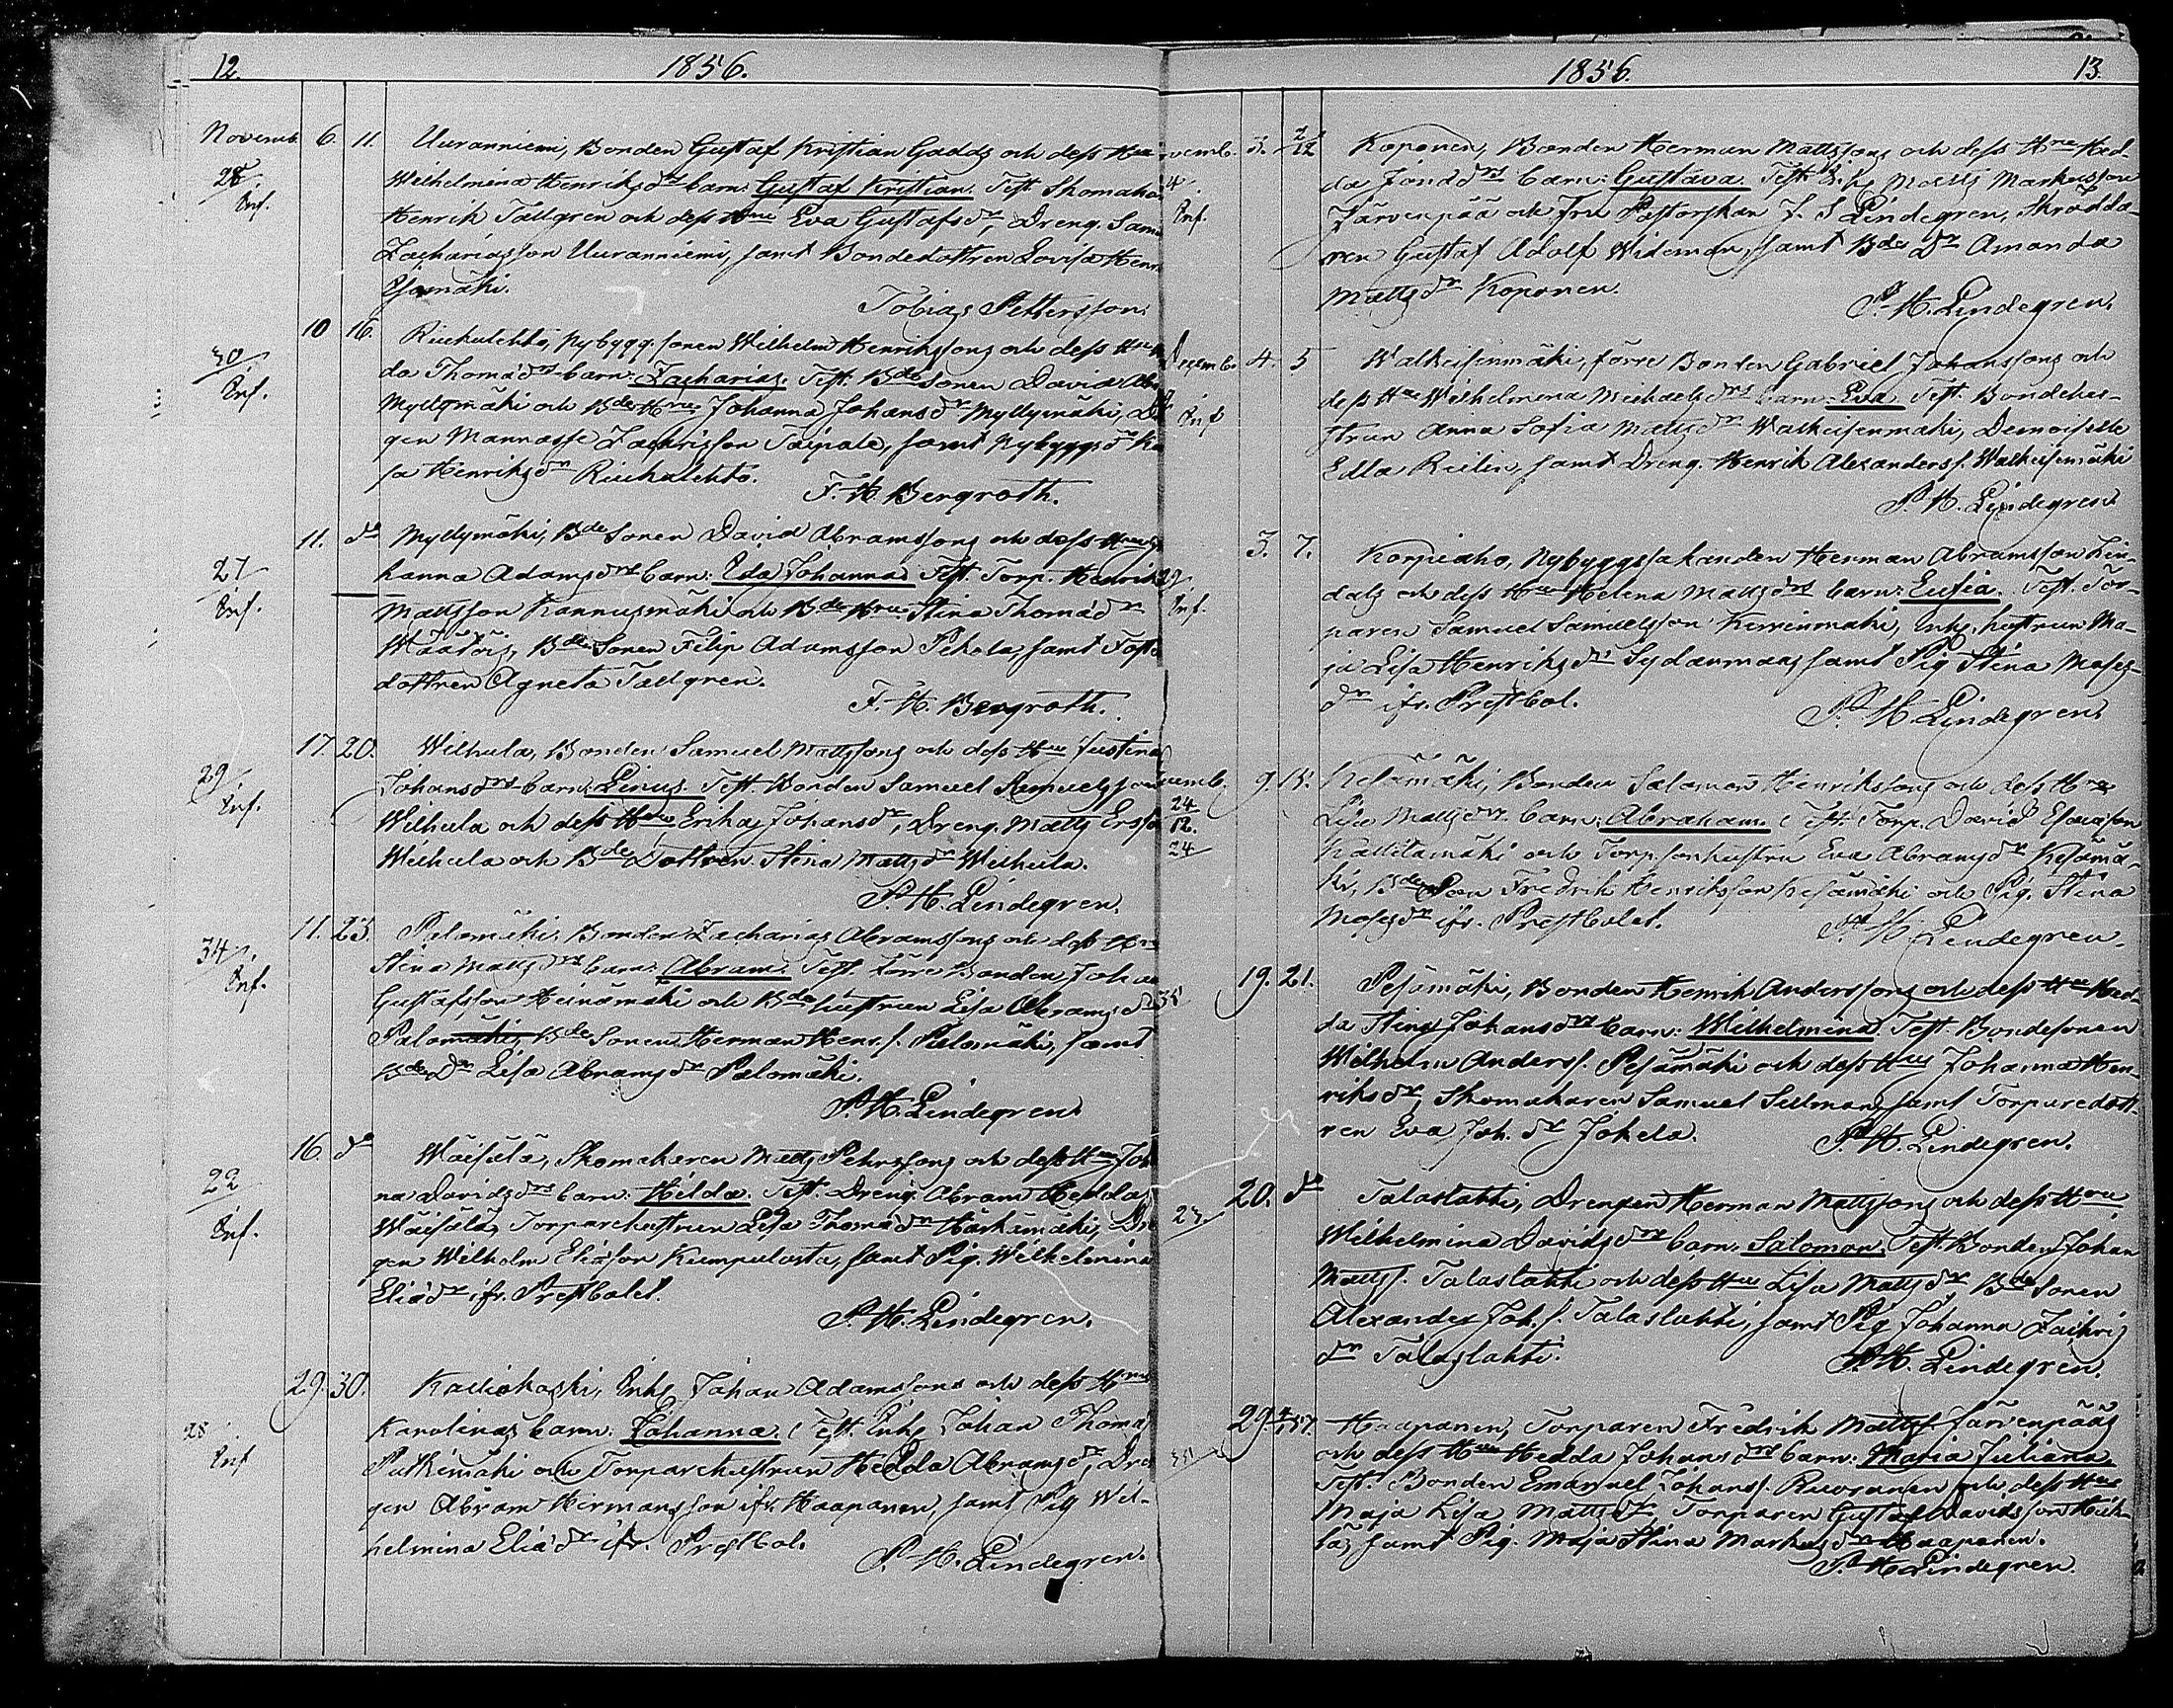 12. 1856.
Novemb. 6. 11. Uuranniemi, Bonden Gustaf Kristian Gadds och dess Hu
28 Wilhelmina Henriksdrs barn: Gustaf Kristian. Test. Skomaka
Inf. Henrik Tallgren och dess Hru Eva Gustafsdr, Dreng. Sam
Zachariasson Uuranniemi, samt Bondedottren Lovisa Hen
Tobias Pettersson.
10 16. Riuhulehto, Nybygg. sonen Wilhelm Henrikssons och dess Hu
30 da Thomædrs barn: Zacharias. Test. Bde Sonen David Abr
Inf. Myllymäki och Bde Hru Johanna Johansdr Myllymäki, D
gen Mannasse Zachrisson Taipale, samt Nybyggsdr
sa Henriksdr Riuhulehto.
F. H. Bergroth.
11. do Myllymäki, Bde Sonen David Abramssons och dess Hru
27 hanna Adamsdrs barn: Ida Johanna. Test. Torp. Henrik
Inf. Mattsson Kannusmäki och Bde Hru Stina Thomædr
Bde Sonen Filip Adamsson Pekola, samt
dottren Agneta Tallgren.
F. H. Bergroth.
17. 20. Wilhula, Bonden Samuel Mattssons och dess Hu Justina
29 Johansdrs barn: Linus. Test. Bonden Samuel Samuelsson
Inf. Wilhula och dess Hru Erika Johansdr, Dreng. Matts Ersson
Wilhula och Bde Dottren Stina Mattsdr Wilhula.
P. H. Lindegren.
11. 23. Palomäki, Bonden Zacharias Abramssons och dess Hru
34 Stina Mattsdrs barn: Abram. Test. förre Bonden Johan
Inf. Gustafsson Heinämäki och Bde hustrun Lisa Abramsdr
Palomäki, Bde Sonen Herman Henr. s. Palomäki, samt
Bde Dr Lisa Abramsdr Palomäki.
P. H. Lindegren.
16. do Wäisälä, Skomakaren Matts Pehrssons och dess Hru Joh
22 na Davidsdrs barn: Hilda. Test. Dreng. Abram
Inf. Wäisälä, Torparehustrun Lisa Thomædr Härkämäki, Dre
gen Wilhelm Eliæson Kumpulasta, samt Pig. Wilhelmina
Eliædr ifr. Prestbolet.
P. H. Lindegren.
29. 30. Kalliokoski, Enkl. Johan Adamssons och dess Hrus
28 Karolinas barn: Johanna. Test. Enkl. Johan Thomæ
Inf Putkimäki och Torparehustrun Hedda Abramsdr, Dre
gen Abram Hermansson ifr. Haapanen, samt Pig Wil-
helmina Eliædr ifr. Prestbol.
P. H. Lindegren.
1856. 13.
3. 2/12 Koponen, Bonden Herman Mattssons och dess Hru Hed-
4. da Jonædrs barn: Gustava. Test. Matts Markusson
Inf. Järvenpää och Fru Pastorskan J. S. Lindegren, Skrædda-
ren Gustaf Adolf Wideman, samt Bde Dr Amanda
Mattsdr Koponen.
P. H. Lindegren.
Dezemb. 4. 5 Walkeisenmäki, förre Bonden Gabriel Johanssons och
dess Hru Wilhelmina Michaelsdrs barn: Eva. Test. Bondehu-
Inf strun Anna Sofia Mattsdr Walkeisenmäki, Demoiselle
Edla samt Dreng. Henrik Alexanders. Walkeisenmäki
P. H. Lindegren
3. 7. Korpiaho, Nybyggssakanden Herman Abramsson Lin-
29 dals och dess Hru Helena Mattsdrs barn: Eufia. Test. Tor-
Inf. paren Samuel Samuelsson Kirrinmäki, Enkl. hustrun Ma-
ja Lisa Henriksdr Sydänmaa, samt Pig Stina Moses-
dr ifr. Prestbol.
P. H. Lindegren.
9. 15. Kesämäki, Bonden Salomon Henrikssons och dess Hru
24 Lisa Mattsdrs barn: Abraham. Test. Torp. David Esaiasson
12. Kallilamäki och Torpsonhustru Eva Abramsdr Kesämä-
24 ki, Bde Son Fredrik Henriksson Kesämäki och Pig. Stina
Mosesdr ifr. Prestbolet.
P. H. Lindegren.
19. 21. Pesämäki, Bonden Henrik Anderssons och dess Hru Hed-
35 da Stina Johansdrs barn: Wilhelmina. Test. Bondesonen
Wilhelm Anderss. Pesämäki och dess Hru Johanna Hen-
riksdr, Skomakaren Samuel Sillman, samt Torparedott-
ren Eva Joh. dr Jokela.
P. H. Lindegren.
20. do Talaslahti, Drengen Herman Mattssons och dess Hru
27. Wilhelmina Davidsdrs barn: Salomon. Test. Bonden Johan
Mattss. Talaslahti och dess Hru Lisa Mattsdr, Bde Sonen
Alexander Joh. s. Talaslahti, samt Pig Johanna Zachris
dr Talaslahti.
P. H. Lindegren.
29. Haapanen, Torparen Fredrik Mattss. Järvenpääs
och dess Hru Hedda Johansdrs barn: Maria Juliana
Test. Bonden Emanuel Johanss. Ruoranen och dess Hru
Maja Lisa Mattsdr, Torparen Gustaf Davidsson
samt Pig. Maja Stina Markusdr Haapanen.
P. H. Lindegren.